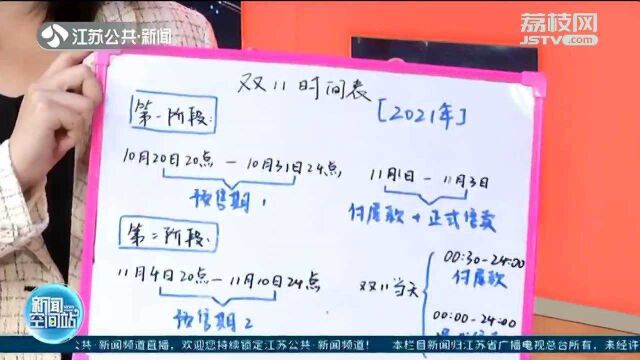 江苏公共·新闻
荔枝网
JSTV.com
双11时间表
[2021年]
第一阶段:
10月20日20点 — 10月31日24点
预售期1
11月1日 — 11月3日
付尾款 + 正式售卖
第二阶段:
11月4日20点 — 11月10日24点
预售期2
双11当天
00:30-24:00
付尾款
00:00-24:00
新闻
空间站
公共·新闻频道直播，欢迎您持续锁定江苏公共·新闻频道
本栏目新闻归江苏省广播电视总台所有，未经许